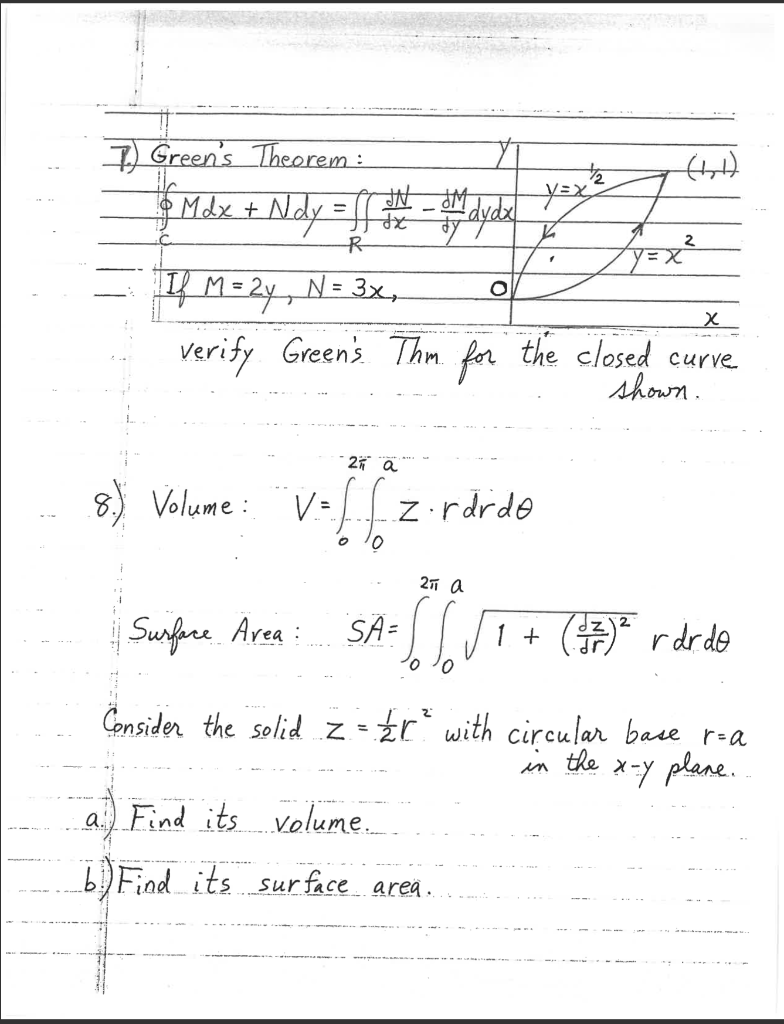 7.) Green's Theorem :
∮_C Mdx + Ndy = ∬_R dN/dx - dM/dy dydx
If M = 2y, N = 3x,
y
y = x^½
(1,1)
y = x²
O
x
verify Green's Thm for the closed curve
shown.
8.) Volume : V = ∫_0^2π ∫_0^a z · r dr dθ
Surface Area : SA = ∫_0^2π ∫_0^a √(1 + (dz/dr)²) r dr dθ
Consider the solid z = ½r² with circular base r=a
in the x-y plane.
a.) Find its volume.
b.) Find its surface area.